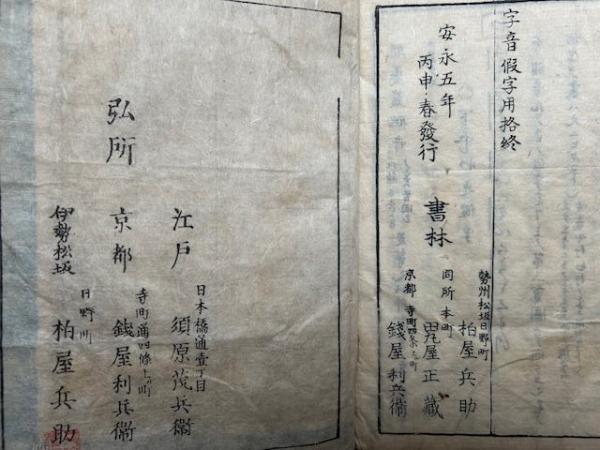 字音假字用格終
安永五年
丙申春發行
書林
勢州松坂日野町
柏屋兵助
同所本町
屋正藏
京都
錢屋利兵衞
弘所
江戸
日本橋通壹丁目
須原茂兵衞
京都
寺町通四條上ル町
錢屋利兵衞
伊勢松坂
日野町
柏屋兵助